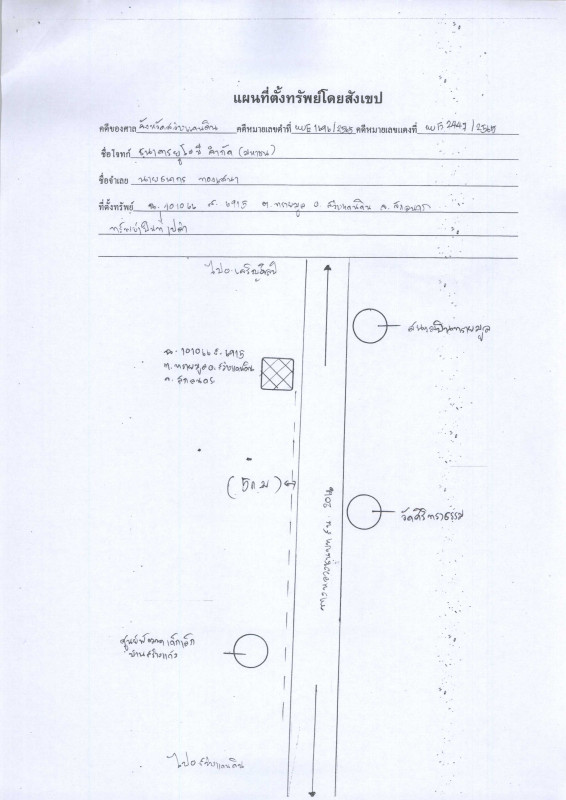 แผนที่ตั้งทรัพย์โดยสังเขป
คดีของศาล จังหวัดสว่างแดนดิน คดีหมายเลขดำที่ ผบE 1696/2565 คดีหมายเลขแดงที่ ผบE 2447/2565
ชื่อโจทก์ ธนาคารยูโอบี จำกัด (มหาชน)
ชื่อจำเลย นายธนากร
ที่ตั้งทรัพย์ ฉ. 101066 ต. ทรายมูล อ. สว่างแดนดิน จ. สกลนคร
ทรัพย์เป็นที่เปล่า
ไปอ.เจริญศิลป์
ฉ. 101066
ต. ทรายมูล อ. สว่างแดนดิน
จ. สกลนคร
(5 ก.ม)
ทางหลวงชนบท สน. 2016
ศูนย์พัฒนาเด็กเล็ก
ไปอ สว่างแดนดิน